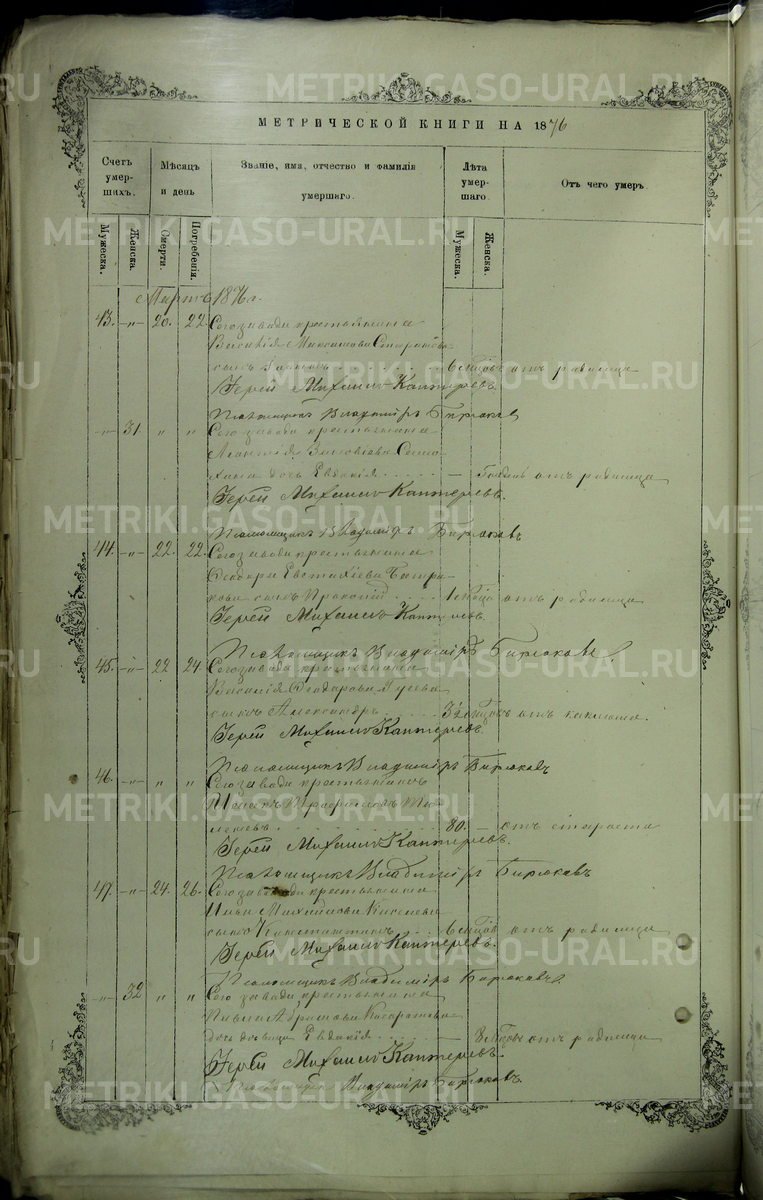 МЕТРИЧЕСКОЙ КНИГИ НА 1876
Счетъ умерших. Мѣсяцъ и день Званіе, имя, отчество и фамилія умершаго. Лѣта умершаго. Отъ чего умеръ.
Мужеска. Женска. Смерти. Погребенія. Мужеска. Женска.
Мартъ 1876 г.
43. -„- 20. 22. Сего завода крестьянина
Василія Максимова
сынъ 6 мѣсцовъ отъ родимца
Іерей Михаилъ Каптеревъ.
Псаломщикъ Владиміръ Бирюковъ
-„- 31. „ „ Сего завода крестьянина
Леонтія Зиновьева
дочь Евдокія — отъ родимца
Іерей Михаилъ Каптеревъ.
Псаломщикъ Владиміръ Бирюковъ
44. -„- 22. 22. Сего завода крестьянина
Феодора Евстафіева
сынъ Прокопій 1 мѣсца отъ родимца
Іерей Михаилъ Каптеревъ.
Псаломщикъ Владиміръ Бирюковъ
45. -„- 22 24 Сего завода крестьянина
Василія Феодорова Гусева
сынъ Александръ 3½ мѣсцовъ отъ кашля.
Іерей Михаилъ Каптеревъ.
Псаломщикъ Владиміръ Бирюковъ
46. -„- „ „ Сего завода крестьянинъ
80. — отъ старости
Іерей Михаилъ Каптеревъ.
Псаломщикъ Владиміръ Бирюковъ
47. -„- 24. 26. Сего завода крестьянина
Ивана Михайлова Киселева
сынъ Константинъ 6 мѣсцов отъ родимца
Іерей Михаилъ Каптеревъ.
Псаломщикъ Владиміръ Бирюковъ
-„- 32 „ „ Сего завода крестьянина
Павла Абрамова
дочь Евдокія — 8 мѣсцов отъ родимца
Іерей Михаилъ Каптеревъ.
Псаломщикъ Владиміръ Бирюковъ.
METRIKI.GASO-URAL.RU